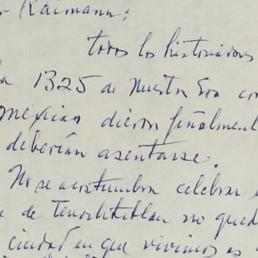 Raimann:
todos los historiadores
1325 de Nuestra Era con
dieron finalment
deberían asentarse.
No se acostumbra celebrar
de Tenochtitlan no qued
ciudad en que vivimos es